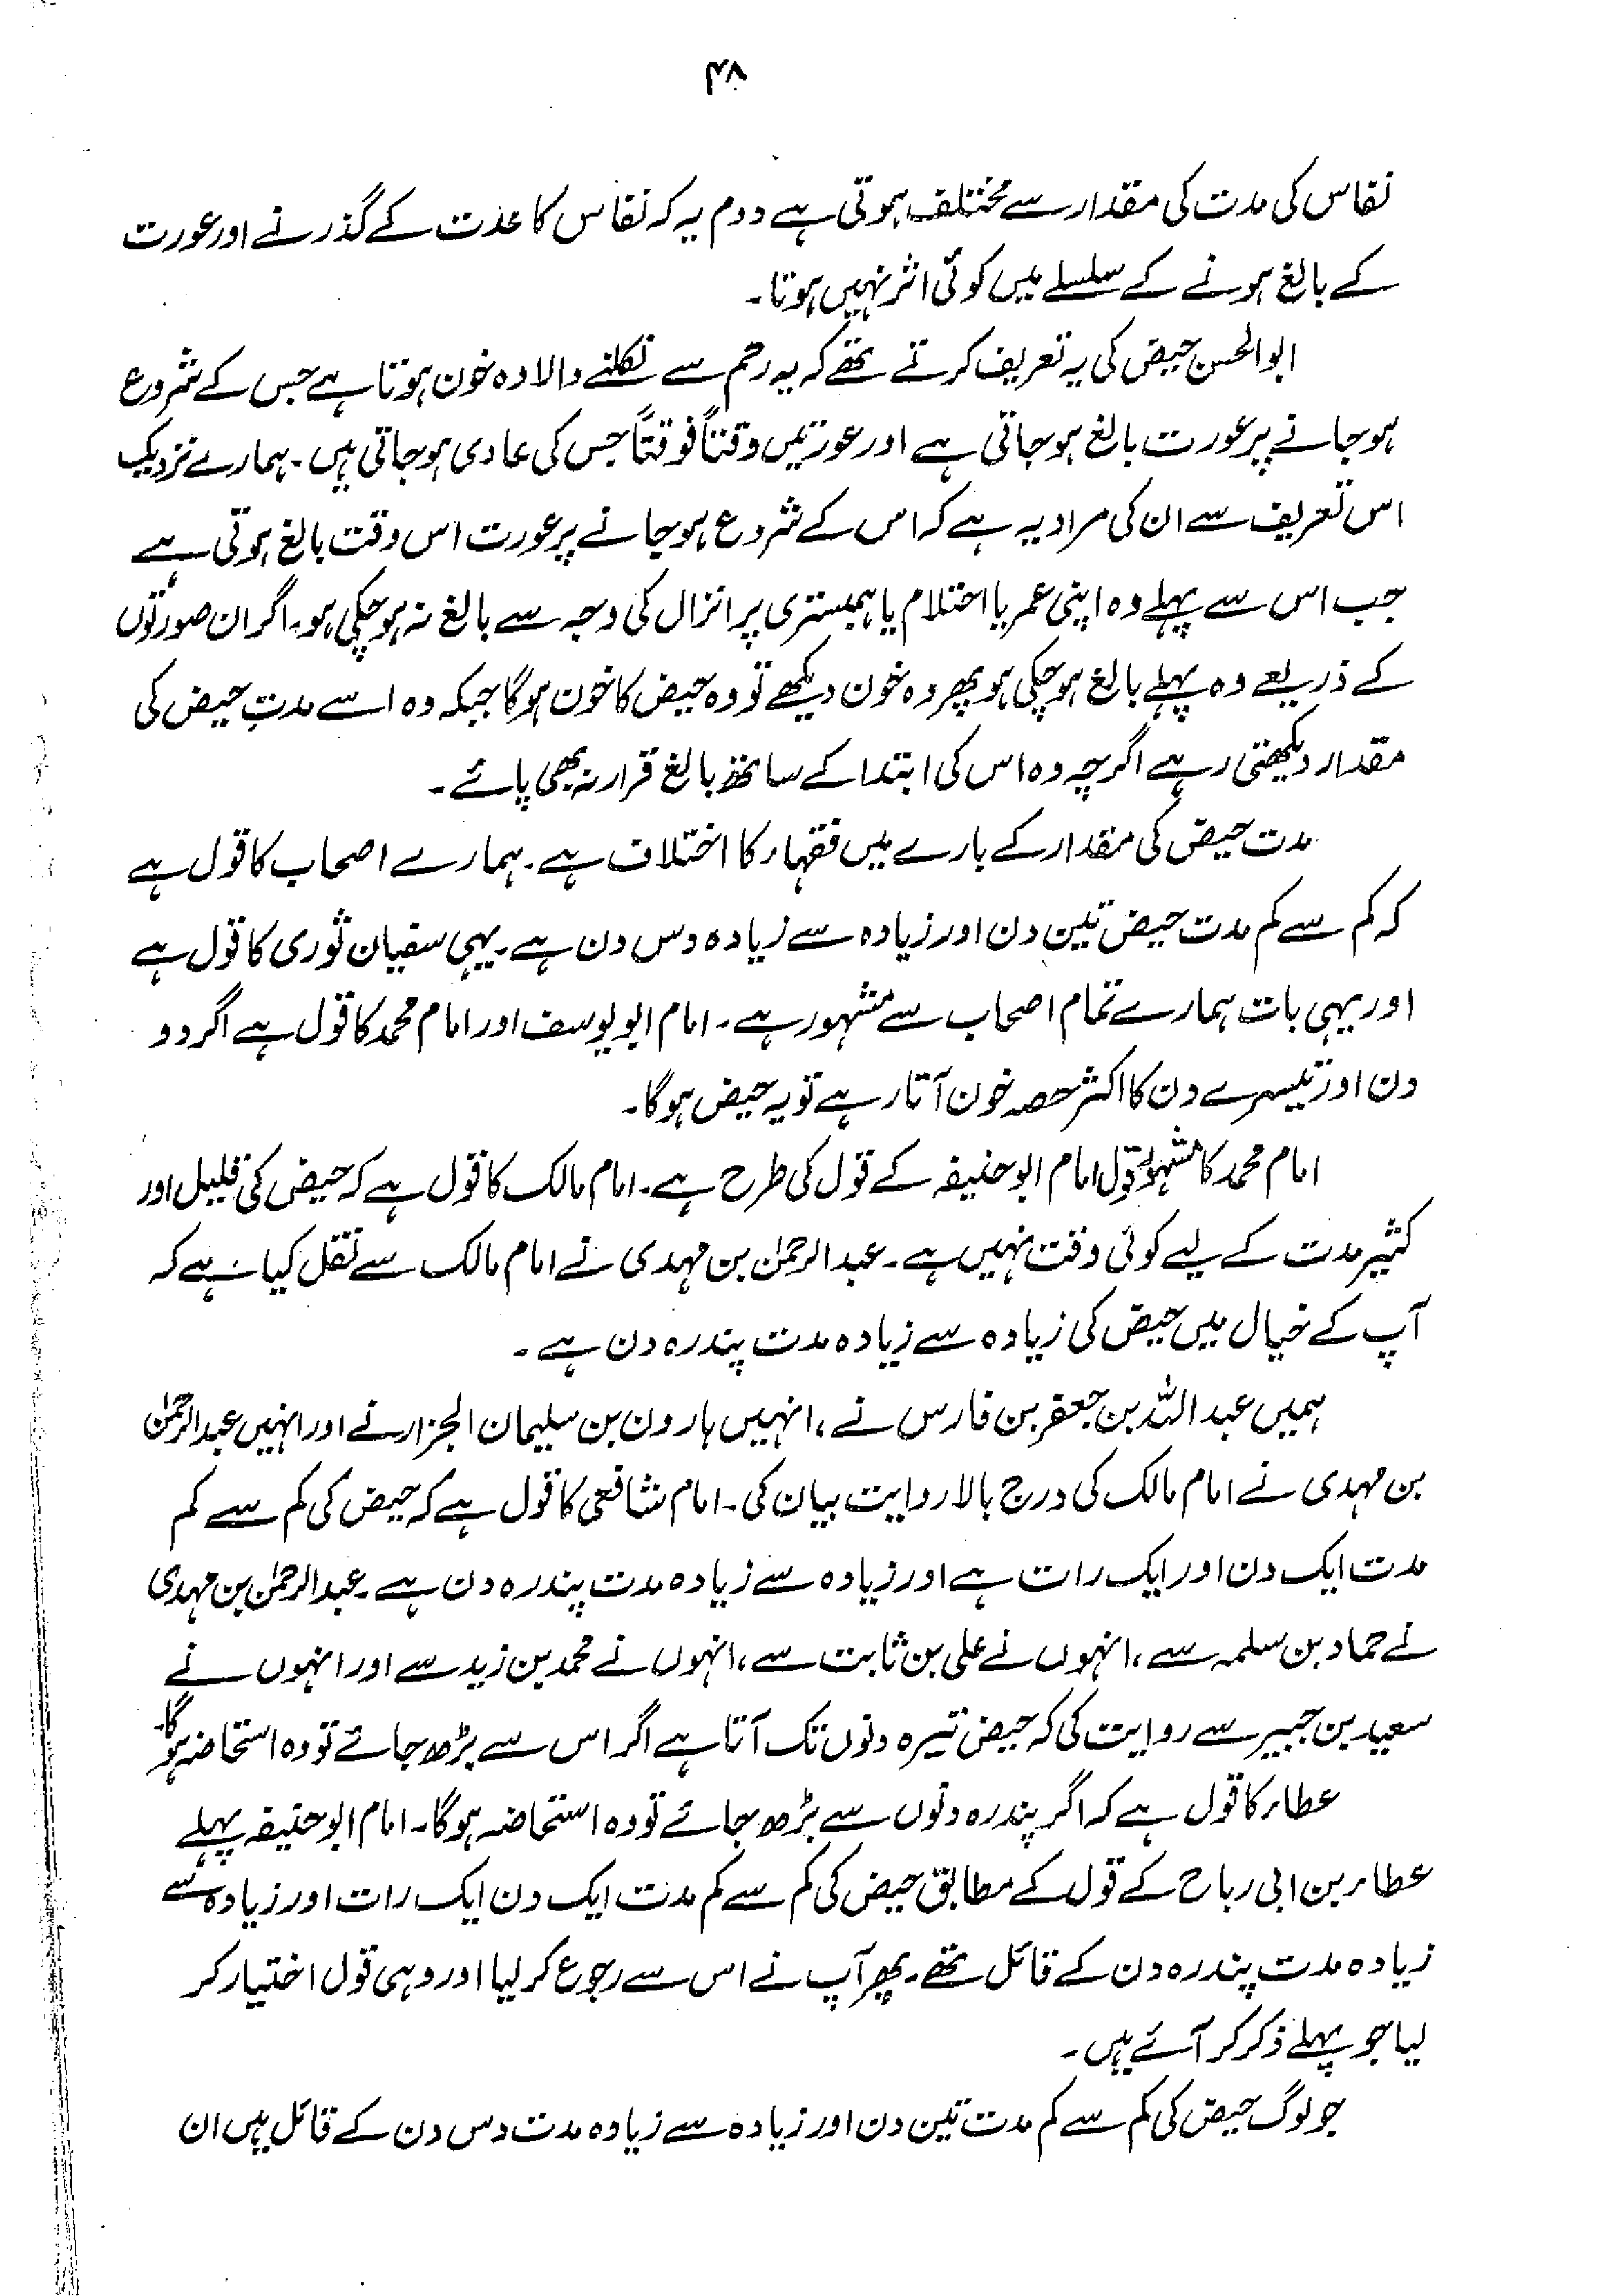 ۴۸
نفاس کی مدت کی مقدار سے مختلف ہوتی ہے دوم یہ کہ نفاس کا عدت کے گذرنے اور عورت
کے بالغ ہونے کے سلسلے میں کوئی اثر نہیں ہوتا۔
ابوالحسن حیض کی یہ تعریف کرتے تھے کہ یہ رحم سے نکلنے والا وہ خون ہوتا ہے جس کے شروع
ہو جانے پر عورت بالغ ہو جاتی ہے اور عورتیں وقتاً فوقتاً جس کی عادی ہو جاتی ہیں۔ ہمارے نزدیک
اس تعریف سے ان کی مراد یہ ہے کہ اس کے شروع ہو جانے پر عورت اس وقت بالغ ہوتی ہے
جب اس سے پہلے وہ اپنی عمر یا احتلام یا ہمبستری پر انزال کی وجہ سے بالغ نہ ہو چکی ہو۔ اگر ان صورتوں
کے ذریعے وہ پہلے بالغ ہو چکی ہو پھر وہ خون دیکھے تو وہ حیض کا خون ہوگا جبکہ وہ اسے مدتِ حیض کی
مقدار دیکھتی رہے اگرچہ وہ اس کی ابتدا کے ساتھ بالغ قرار نہ بھی پائے۔
مدت حیض کی مقدار کے بارے میں فقہاء کا اختلاف ہے۔ ہمارے اصحاب کا قول ہے
کہ کم سے کم مدت حیض تین دن اور زیادہ سے زیادہ دس دن ہے۔ یہی سفیان ثوری کا قول ہے
اور یہی بات ہمارے تمام اصحاب سے مشہور ہے۔ امام ابویوسف اور امام محمد کا قول ہے اگر دو
دن اور تیسرے دن کا اکثر حصہ خون آتا رہے تو یہ حیض ہوگا۔
امام محمد کا مشہور قول امام ابوحنیفہ کے قول کی طرح ہے۔ امام مالک کا قول ہے کہ حیض کی قلیل اور
کثیر مدت کے لیے کوئی وقت نہیں ہے۔ عبدالرحمٰن بن مہدی نے امام مالک سے نقل کیا ہے کہ
آپ کے خیال میں حیض کی زیادہ سے زیادہ مدت پندرہ دن ہے۔
ہمیں عبداللہ بن جعفر بن فارس نے، انہیں ہارون بن سلیمان الجزار نے اور انہیں عبدالرحمٰن
بن مہدی نے امام مالک کی درج بالا روایت بیان کی۔ امام شافعی کا قول ہے کہ حیض کی کم سے کم
مدت ایک دن اور ایک رات ہے اور زیادہ سے زیادہ مدت پندرہ دن ہے۔ عبدالرحمٰن بن مہدی
نے حماد بن سلمہ سے، انہوں نے علی بن ثابت سے، انہوں نے محمد بن زید سے اور انہوں نے
سعید بن جبیر سے روایت کی کہ حیض تیرہ دنوں تک آتا ہے اگر اس سے بڑھ جائے تو وہ استحاضہ ہوگا۔
عطاء کا قول ہے کہ اگر پندرہ دنوں سے بڑھ جائے تو وہ استحاضہ ہوگا۔ امام ابوحنیفہ پہلے
عطاء بن ابی رباح کے قول کے مطابق حیض کی کم سے کم مدت ایک دن ایک رات اور زیادہ سے
زیادہ مدت پندرہ دن کے قائل تھے۔ پھر آپ نے اس سے رجوع کر لیا اور وہی قول اختیار کر
لیا جو پہلے ذکر کر آئے ہیں۔
جو لوگ حیض کی کم سے کم مدت تین دن اور زیادہ سے زیادہ مدت دس دن کے قائل ہیں ان